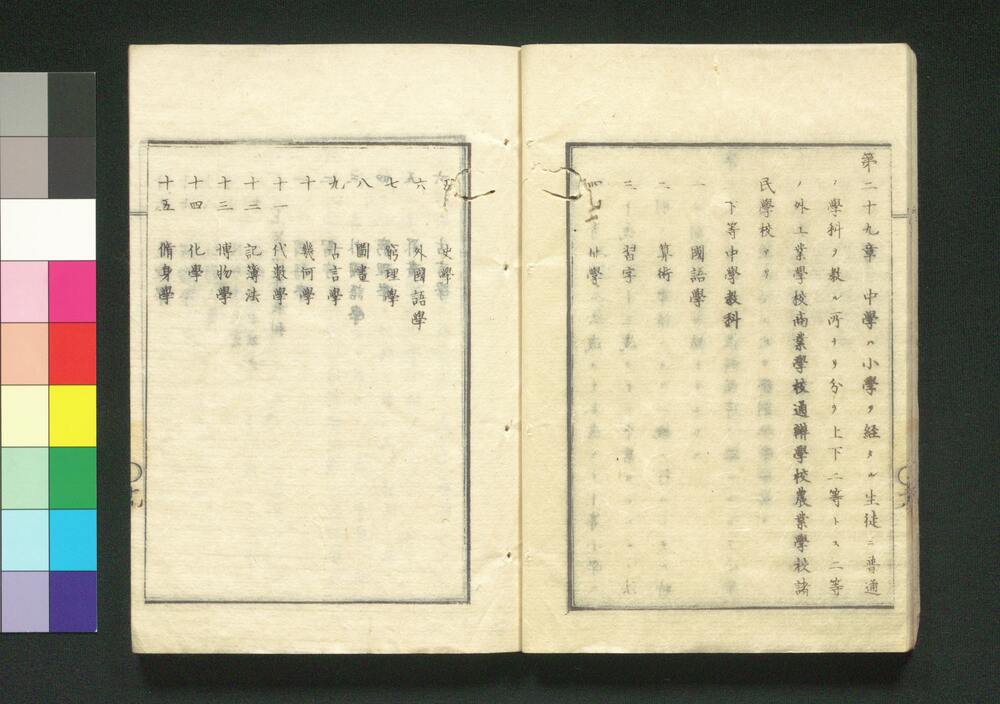 第二十九章　中學ハ小學ヲ経タル生徒ニ普通
ノ學科ヲ敎ル所ナリ分ヲ上下二等トス二等
ノ外工業學校商業學校通辯學校農業學校諸
民學校アリ
下等中學敎科
一　國語學
二　算術
三　習字
四　地學
五　史學
六　外國語學
七　窮理學
八　圖畫
九　古言學
十　幾何學
十一　代數學
十二　記簿法
十三　博物學
十四　化學
十五　脩身學